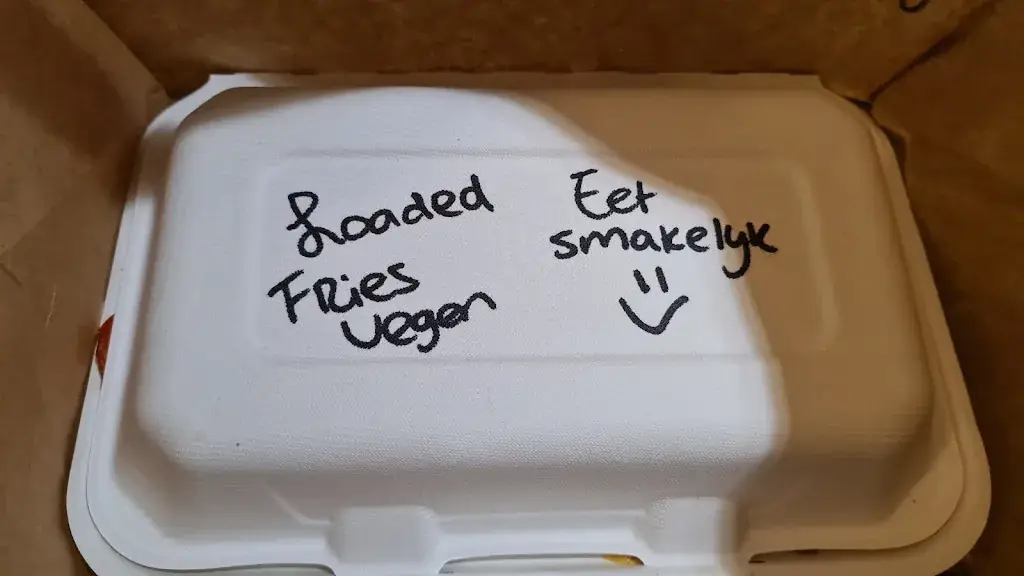 Loaded
Fries
vegan
Eet
smakelyk